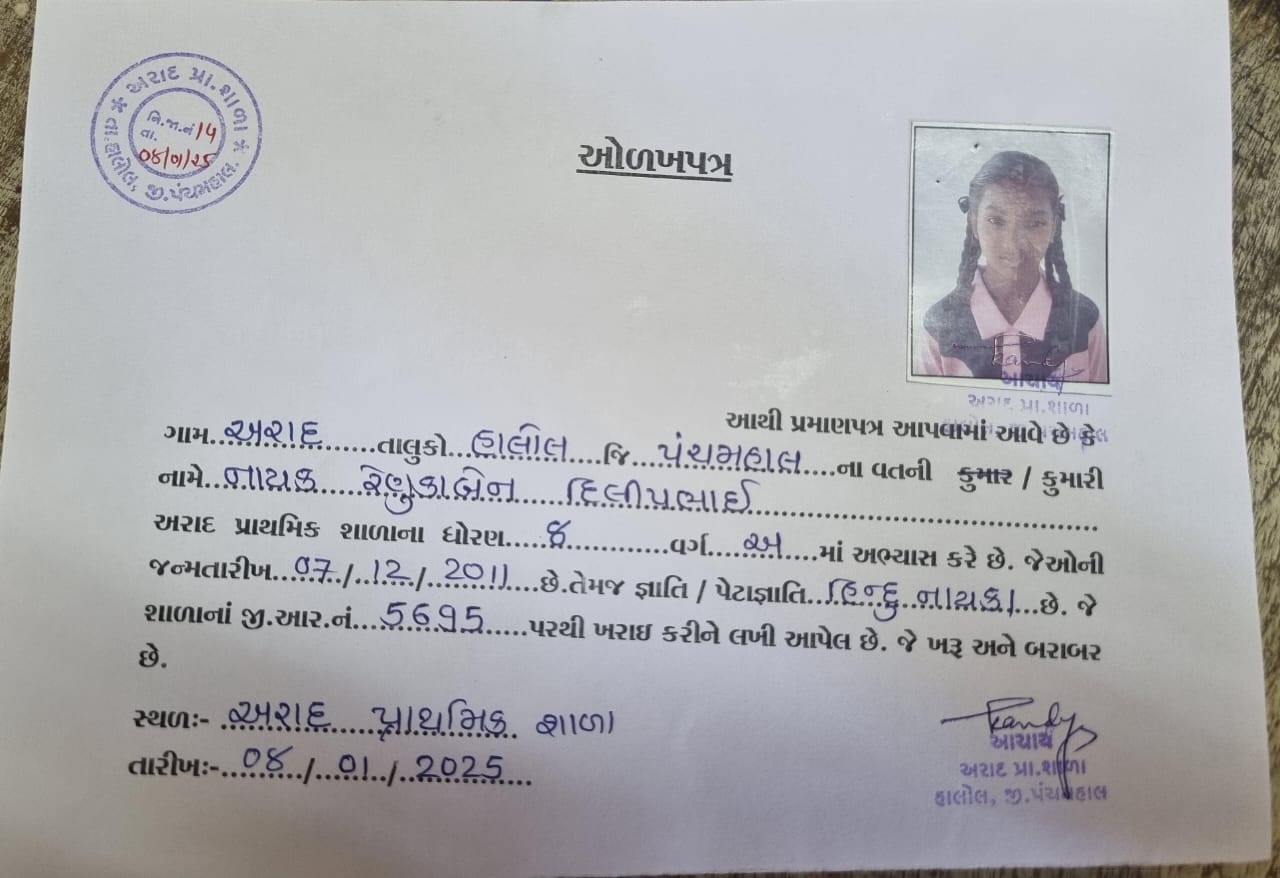 * અરાદ પ્રા.શાળા *
નિ.જા.નં 14
તા.
08/01/25
તા.હાલોલ, જી.પંચમહાલ.
ઓળખપત્ર
આચાર્ય
અરાદ પ્રા.શાળા
આથી પ્રમાણપત્ર આપવામાં આવે છે કે
ગામ..અરાદ......તાલુકો...હાલોલ....જિ...પંચમહાલ....ના વતની કુમાર / કુમારી
નામે..નાયક....રેણુકાબેન.....દિલીપભાઈ......
અરાદ પ્રાથમિક શાળાના ધોરણ.....8............વર્ગ....અ....માં અભ્યાસ કરે છે. જેઓની
જન્મતારીખ...07../..12../..2011....છે.તેમજ જ્ઞાતિ / પેટાજ્ઞાતિ...હિન્દુ..નાયકા...છે. જે
શાળાનાં જી.આર.નં....5695.....પરથી ખરાઇ કરીને લખી આપેલ છે. જે ખરૂ અને બરાબર
છે.
સ્થળઃ- અરાદ પ્રાથમિક શાળા
તારીખઃ-...08.../...01.../..2025....
આચાર્ય
અરાદ પ્રા.શાળા
હાલોલ, જી.પંચમહાલ